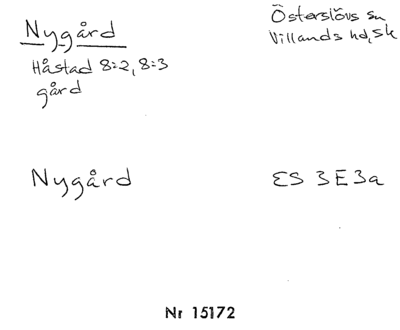 Nygård
Österslövs sn
Villands hd, Sk
Håstad 8:2, 8:3
gård
Nygård
ES 3E3a
Nr 15172